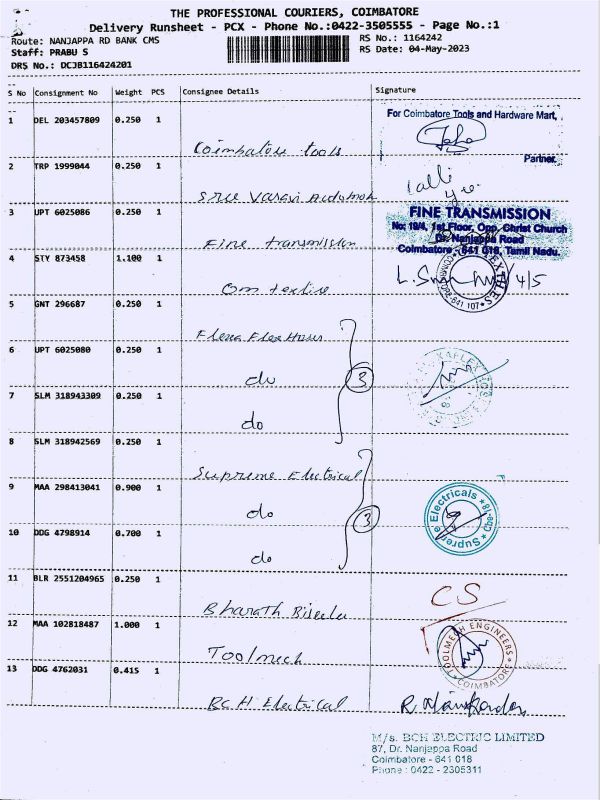 THE PROFESSIONAL COURIERS, COIMBATORE
Delivery Runsheet - PCX - Phone No.:0422-3505555 - Page No.:1
Route: NANJAPPA RD BANK CMS
RS No.: 1164242
Staff: PRABU S
RS Date: 04-May-2023
DRS No.: DCJB116424201
S No Consignment No Weight PCS Consignee Details Signature
1 DEL 203457809 0.250 1
For Coimbatore Tools and Hardware Mart,
Coimbatore tools
Partner.
2 TRP 1999044 0.250 1
Sree Varavi Automob
3 UPT 6025086 0.250 1
FINE TRANSMISSION
No: 19/4, 1st Floor, Opp. Christ Church
Dr. Nanjappa Road
Coimbatore - 641 018, Tamil Nadu.
Fine transmission
4 STY 873458 1.100 1
4/5
Om textile
5 GNT 296687 0.250 1
6 UPT 6025080 0.250 1
do
3
7 SLM 318943309 0.250 1
do
8 SLM 318942569 0.250 1
Supreme Electrical
9 MAA 298413041 0.900 1
Supreme Electricals
do
3
10 DDG 4798914 0.700 1
do
11 BLR 2551204965 0.250 1
CS
Bharath
12 MAA 102818487 1.000 1
TOOLMECH ENGINEERS
COIMBATORE
Toolmech
13 DDG 4762031 0.415 1
BCH Electrical
M/s. BCH ELECTRIC LIMITED
87, Dr. Nanjappa Road
Coimbatore - 641 018
Phone : 0422 - 2305311